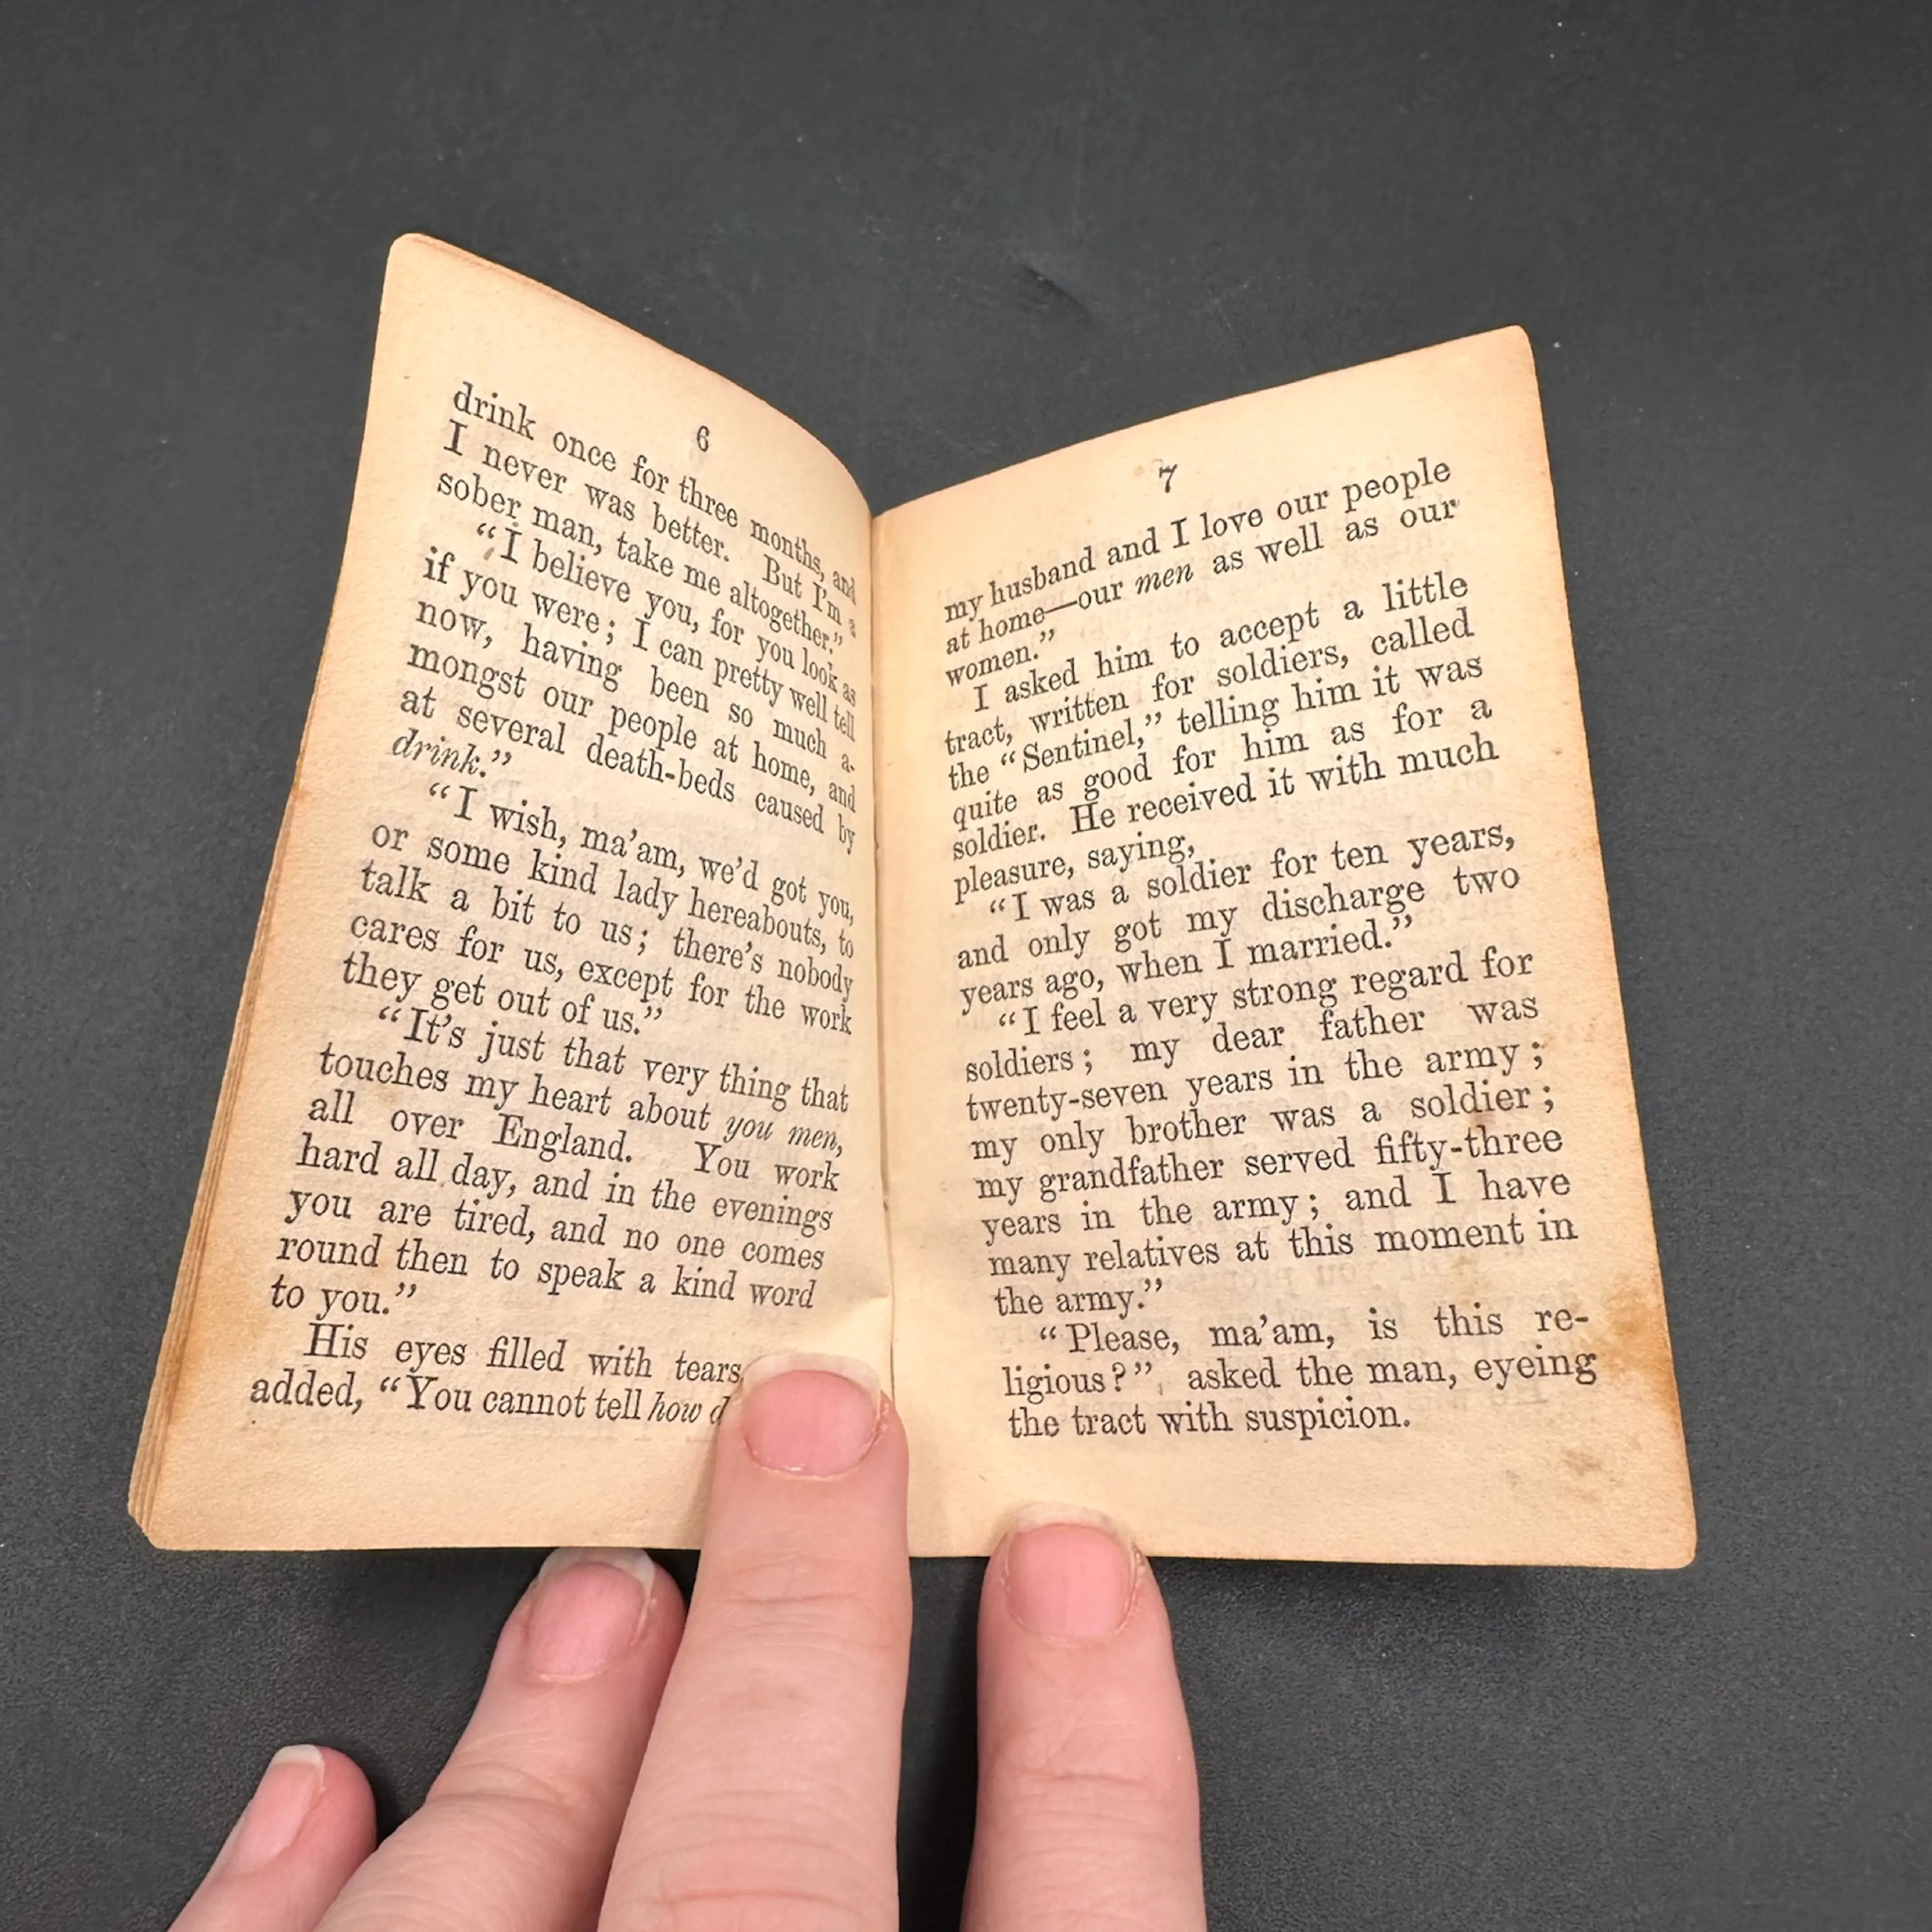 6
drink once for three months, and
I never was better. But I'm a
sober man, take me altogether."
"I believe you, for you look as
if you were; I can pretty well tell
now, having been so much a-
mongst our people at home, and
at several death-beds caused by
drink."
"I wish, ma'am, we'd got you,
or some kind lady hereabouts, to
talk a bit to us; there's nobody
cares for us, except for the work
they get out of us."
"It's just that very thing that
touches my heart about you men,
all over England. You work
hard all day, and in the evenings
you are tired, and no one comes
round then to speak a kind word
to you."
His eyes filled with tears
added, "You cannot tell how
7
my husband and I love our people
at home—our men as well as our
women."
I asked him to accept a little
tract, written for soldiers, called
the "Sentinel," telling him it was
quite as good for him as for a
soldier. He received it with much
pleasure, saying,
"I was a soldier for ten years,
and only got my discharge two
years ago, when I married."
"I feel a very strong regard for
soldiers; my dear father was
twenty-seven years in the army;
my only brother was a soldier;
my grandfather served fifty-three
years in the army; and I have
many relatives at this moment in
the army."
"Please, ma'am, is this re-
ligious?" asked the man, eyeing
the tract with suspicion.